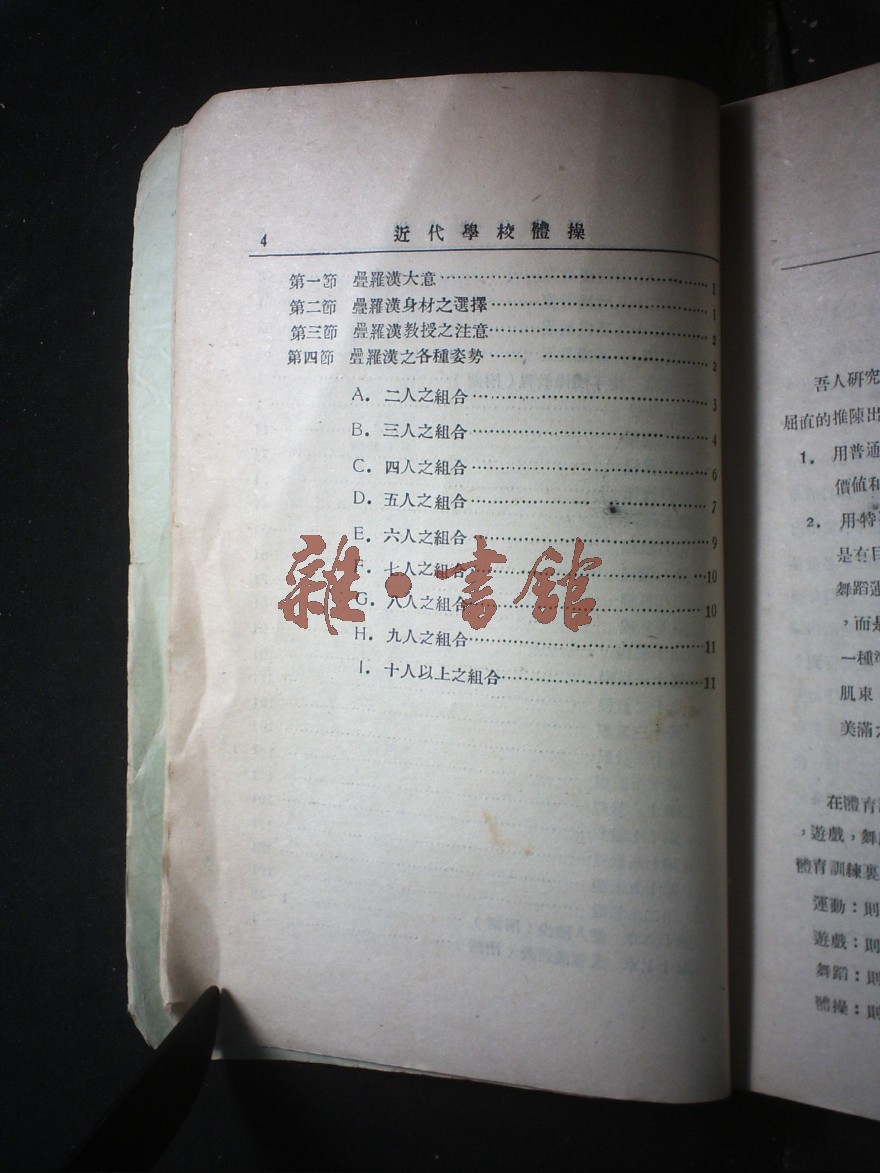 4 近代學校體操
第一節 疊羅漢大意 1
第二節 疊羅漢身材之選擇 1
第三節 疊羅漢教授之注意 2
第四節 疊羅漢之各種姿勢 2
A. 二人之組合 3
B. 三人之組合 4
C. 四人之組合 6
D. 五人之組合 7
E. 六人之組合 9
F. 七人之組合 10
G. 八人之組合 10
H. 九人之組合 11
I. 十人以上之組合 11
雜·書館
吾人研究
屈直的推陳出
1. 用普通
價値和
2. 用特
是有目
舞蹈運
,而是
一種準
肌束
美滿
在體育
,遊戲,舞
體育訓練裏
運動:則
遊戲:則
舞蹈:則
體操:則